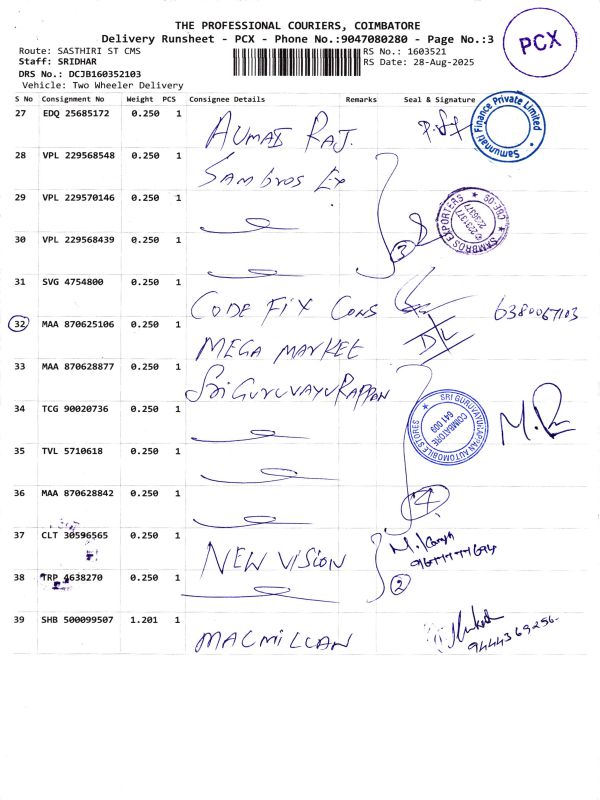 THE PROFESSIONAL COURIERS, COIMBATORE
Delivery Runsheet - PCX - Phone No.:9047080280 - Page No.:3
PCX
Route: SASTHIRI ST CMS
RS No.: 1603521
Staff: SRIDHAR
RS Date: 28-Aug-2025
DRS No.: DCJB160352103
Vehicle: Two Wheeler Delivery
S No Consignment No Weight PCS Consignee Details Remarks Seal & Signature
27 EDQ 25685172 0.250 1 RAJ.
Samunnati Finance Private Limited
28 VPL 229568548 0.250 1 SAMBROS EX
29 VPL 229570146 0.250 1
SAMBROS EXPORTERS
CBE-09
30 VPL 228568439 0.250 1 3
31 SVG 4754800 0.250 1 CODE FIX CONS 6380067103
32 MAA 870625106 0.250 1 MEGA MARKET D/L
33 MAA 870628877 0.250 1 SRI GURUVAYURAPPAN
34 TCG 90020736 0.250 1
SRI GURUVAYURAPPAN AUTOMOBILE STORES
COIMBATORE
641 009
35 TVL 5710618 0.250 1
36 MAA 870628842 0.250 1 4
37 CLT 30596565 0.250 1 NEW VISION
38 TRP 4638270 0.250 1 2
39 SHB 500099507 1.201 1 MACMILLAN
9444369256